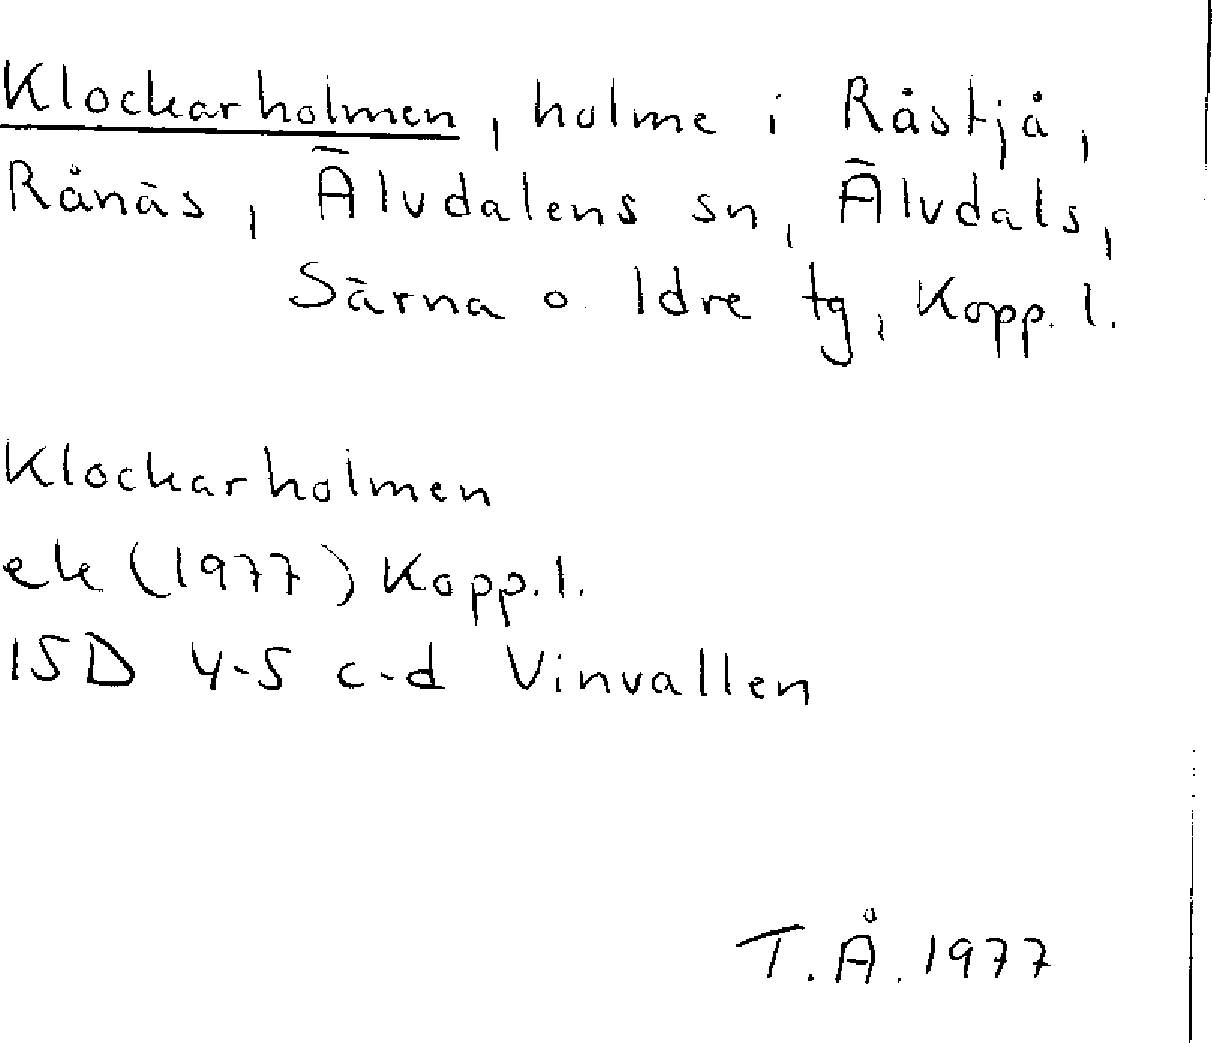 Klockarholmen, holme i Råstjå,
Rånäs, Älvdalens sn, Älvdals,
Särna o. Idre tg, Kopp. l.
Klockarholmen
ek (1977) Kopp. l.
15D 4-5 c-d Vinvallen
T.Å. 1977